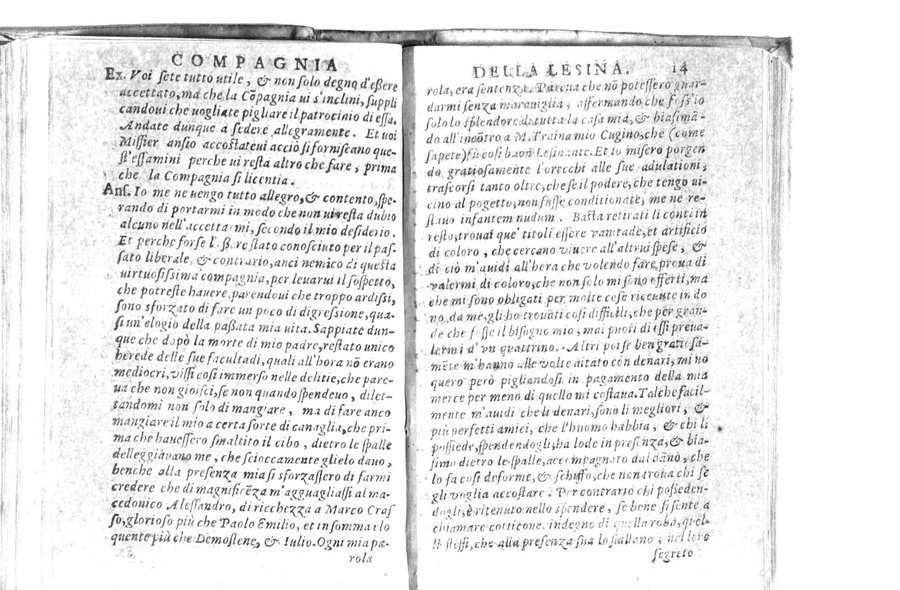 COMPAGNIA
Ex. Voi sete tutto utile, & non solo degno d'eßere
accettato, ma che la Cõpagnia ui s'inclini, suppli
candoui che uogliate pigliare il patrocinio di essa.
Andate dunque a sedere allegramente. Et uoi
Missier ansio accostateui acciò si forniscano que-
st'essamini perche ui resta altro che fare, prima
che la Compagnia si licentia.
Ans. Io me ne uengo tutto allegro, & contento, spe-
rando di portarmi in modo che non ui resta dubio
alcuno nell'accettarmi, secondo il mio desiderio.
Et perche forse l'ß. restato conosciuto per il pas-
sato liberale, & contrario, anci nemico di questa
virtuosissima compagnia, per leuarui il sospetto,
che potreste hauere, parendoui che troppo ardissi,
sono sforzato di fare un poco di digressione, qua-
si un'elogio della paßata mia uita. Sappiate dun-
que che dapò la morte di mio padre, restato unico
herede delle sue facultadi, quali all'hora nõ erano
mediocri, vissi cosi immerso nelle delitie, che pare-
ua che non gioissi, se non quando spendeuo, dilet-
tandomi non solo di mangiare, ma di fare anco
mangiare il mio a certa sorte di canaglia, che pri-
ma che hauessero smaltito il cibo, dietro le spalle
delleggiauano me, che sioccamente glielo dauo,
benche alla presenza mia si sforzassero di farmi
credere che di magnificẽza m'agguagliassi al ma-
cedonico Alessandro, di ricchezza a Marco Cras
so, glorioso più che Paolo Emilio, et insomma elo
quente più che Demostene, & Iulio. Ogni mia pa-
rola
DELLA LESINA. 14
rola, era sentenza. Pareua che nõ potessero guar-
darmi senza marauiglia, affermando che foss'io
solo lo splendore di tutta la casa mia, & biasimã-
do all'incõtro a M. Traina mio Cugino, che (come
sapete) fù cosi buon Lesinante. Et io misero porgen
do gratiosamente l'orecchi alle sue adulationi,
trascorsi tanto oltre, che se il podere, che tengo ui-
cino al pogetto, non fusse conditionate, me ne re-
stauo infantem nudum. Basta retirati li conti in
resto, trouai que' titoli essere vanitade, et artificio
di coloro, che cercano viuere all'altrui spese, &
di ciò m'auidi all'hora che volendo fare proua di
valermi di coloro, che non solo mi sono offerti, ma
che mi sono obligati per molte cose riceuute in do
no, da me, gli ho trouati cosi difficili, che per gran-
de che fosse il bisogno mio, mai puori di essi preua-
lermi d'vn quattrino. Altri poi se ben gratiosa-
mẽte m'hanno alle volte aitato con denari, mi no
quero però pigliandosi in pagamento della mia
merce per meno di quello mi costaua. Talche facil-
mente m'auidi che li denari, sono li megliori, &
più perfetti amici, che l'huomo habbia, & chi li
possiede, spendendogli, ha lode in presenza, & bia-
simo dietro le spalle, accompagnato dal dãno, che
lo fa cosi deforme, & schiffo, che non troua chi se
gli voglia accostare. Per contrario chi possieden-
dogli, è ritenuto nello spendere, se bene si sente a
chiamare cotticone, indegno di quella roba, quel-
li stessi, che alla presenza sua lo sialleno, nel loro
segreto